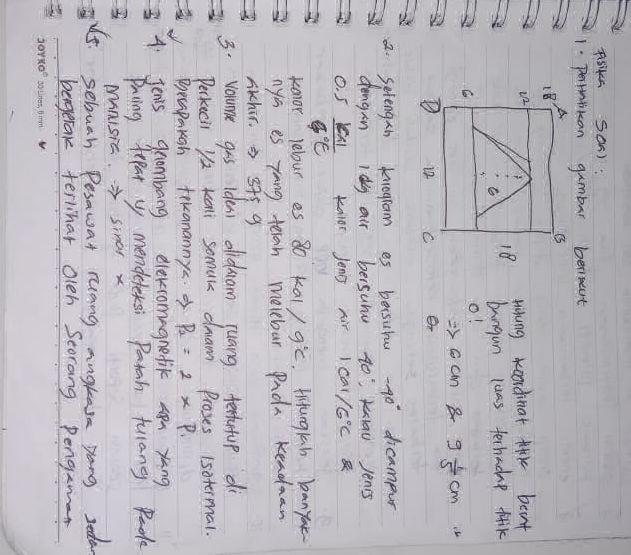 Fisika Soal :
1. Perhatikan gambar berikut
18 A B
12
6
18
6
D 12 C
Hitung koordinat titik berat
bangun luas terhadap titik
0!
=> 6 cm & 9 1/5 cm
2. Setengah kilogram es bersuhu -40° dicampur
dengan 1 kg air bersuhu 40°, kalau jenis
0,5 kal kalor jenis air 1 cal/G°C &
g°C
kalor lebur es 80 kal/g°C. Hitunglah banyak-
nya es yang telah melebur pada keadaan
akhir. => 375 g
3. Volume gas ideal didalam ruang tertutup di
Perkecil 1/2 kali semula dalam Proses Isotermal.
Berapakah tekanannya. => P2 = 2 x P1
4. Jenis gelombang elektromagnetik apa yang
Paling tepat u/ mendeteksi Patah tulang Pada
Manusia. => sinar x
5. Sebuah Pesawat ruang angkasa yang sedang
bergerak terlihat oleh Seorang Pengamat
JOYKO 30 Lines, 8 mm